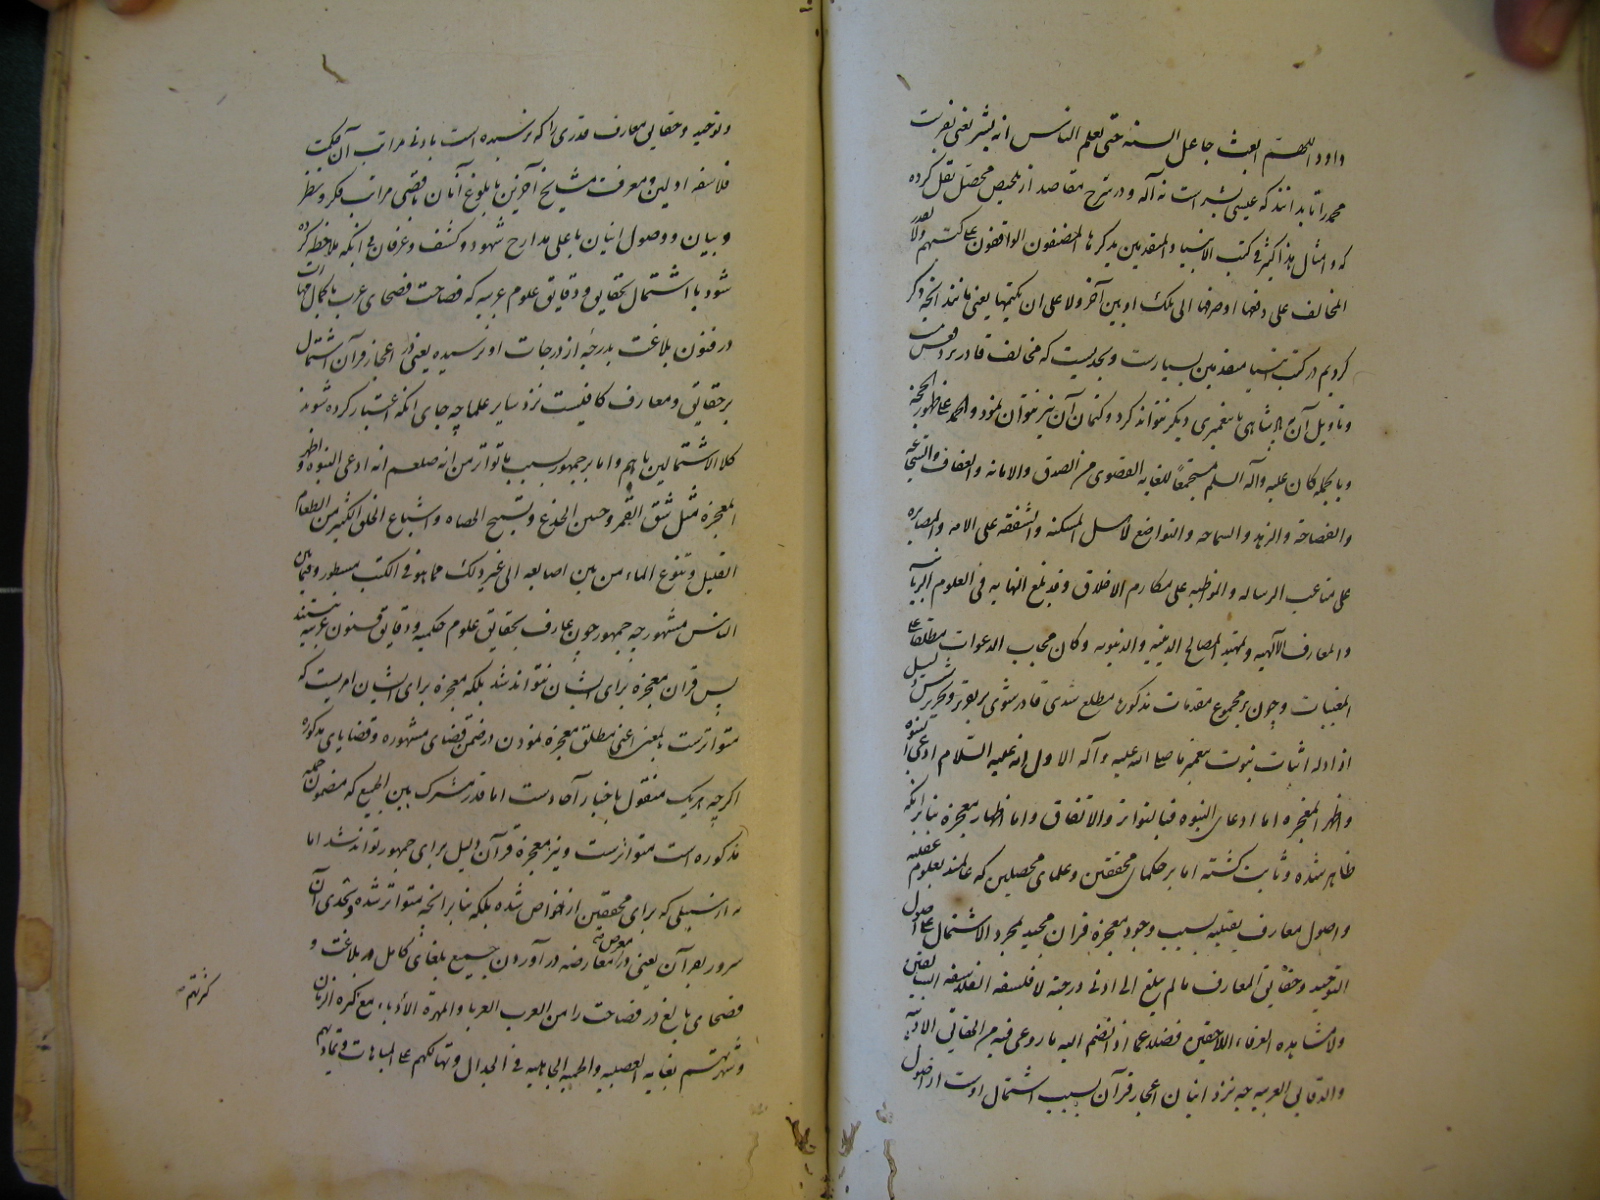 داود اللهم ابعث جاعل السنه حتی یعلم الناس انه بشر یعنی بفرست
محمد را تا بدانند که عیسی بشر است نه آله و در شرح مقاصد از تلخیص محصل نقل کرده
که و امثال هذا کثیر فی کتب الانبیاء المتقدمین یذکرها المصنفون الواقفون علی کتبهم ولا یقدر
المخالف علی دفعها او صرفها الی ملک او نبی آخر ولا علی ان یکتمها یعنی مانند آنچه ذکر
کردیم در کتب انبیا متقدمین بسیارست و بحدیست که مخالف قادر بر دفعش نیست
و تاویل آن به پادشاهی یا پیغمبری دیگر نتواند کرد و کتمان آن نیز نتوان نمود والحمد علی ظهور الحجة
و بالجمله کان علیه وآله السلم مستجمعا للغایه القصوی من الصدق والامانه والعفاف والشجاعه
والفصاحة والزهد والسماحه والتواضع لأهل المسکنه والشفقه علی الامه والمصابره
علی متاعب الرساله والمواظبه علی مکارم الاخلاق وقد بلغ النهایه فی العلوم الربانیه
والمعارف الآلهیه وتمهید المصالح الدینیه والدنیویه وکان مجاب الدعوات مطلعا علی
المغیبات و چون بر مجموع مقدمات مذکوره مطلع شدی قادر شوی بر تقریر و تحریر شش دلیل
از ادله اثبات نبوت پیغمبر ما صلی الله علیه وآله الاول انه علیه السلام ادعی النبوه
واظهر المعجزه اما ادعای النبوه فبالتواتر والاتفاق واما اظهار معجزه بنابر آنکه
ظاهر شده و ثابت گشته اما بر حکمای محققین و علمای محصلین که عالمند بعلوم عقلیه
و اصول معارف یقینیه بسبب وجود معجزه قران مجید بمجرد الاشتمال علی اصول
التوحید وحقایق المعارف مالم یبلغ الی ادنی درجته لا فلسفه الفلاسفه السابقین
ولا مشاهده العرفاء اللاحقین فضلا عما اذا انضم الیه ما روعی فیه من الحقایق الادبیه
والدقایق العربیه چه نزد اینان اعجاز قرآن بسبب اشتمال اوست از اصول
و توحید و حقایق معارف قدری را که نرسیده است بادنی مراتب آن حکمت
فلاسفه اولین و معرفت مشایخ آخرین با بلوغ آنان باقصی مراتب فکر و نظر
و بیان و وصول اینان باعلی مدارج شهود و کشف و عرفان فی آنکه ملاحظه کرده
شود با اشتمال بحقایق و دقایق علوم عربیه که فصاحت فصحای عرب با کمال مهارت
در فنون بلاغت بدرجه از درجات او نرسیده یعنی در اعجاز قرآن اشتمال
بر حقایق و معارف کافیست نزد سایر علما چه جای آنکه اعتبار کرده شوند
کلا الاشتمالین باهم و اما بر جمهور بسبب ما تواتر من انه صلعم انه ادعی النبوه واظهر
المعجزه مثل شق القمر وحنین الجذع وتسبیح الحصاه واشباع الخلق الکثیر من الطعام
القلیل ونبوع الماء من بین اصابعه الی غیر ذلک مما هو فی الکتب مسطور وفیما بین
الناس مشهور چه جمهور چون عارف بحقایق علوم حکمیه و دقایق فنون عربیه نیستند
پس قران معجزه برای ایشان نتواند شد بلکه معجزه برای ایشان امریست که
متواترست بالمعنی اعنی مطلق معجزه نمودن در ضمن قضای مشهوره و قضایای مذکوره
اگرچه هریک منقول باخبار آحادست اما قدر مشترک بین الجمیع که مضمون جمیع
مذکوره است متواترست و نیز معجزه قرآن دلیل برای جمهور تواند شد اما
نه از سبیلی که برای محققین از خواص شده بلکه بنابر آنچه متواتر شده و تحدی آن
سرور بقرآن یعنی در معرض معارضه در آوردن جمیع بلغای کامل در بلاغت و
فصحای بالغ در فصاحت را من العرب العربا والمهرة الأدباء مع کثره الزمان
وشهرتهم بغایه العصبیه والحمیه الجاهلیه فی الجدال وتهالکهم علی المباهات وتمادیهم
کثرتهم